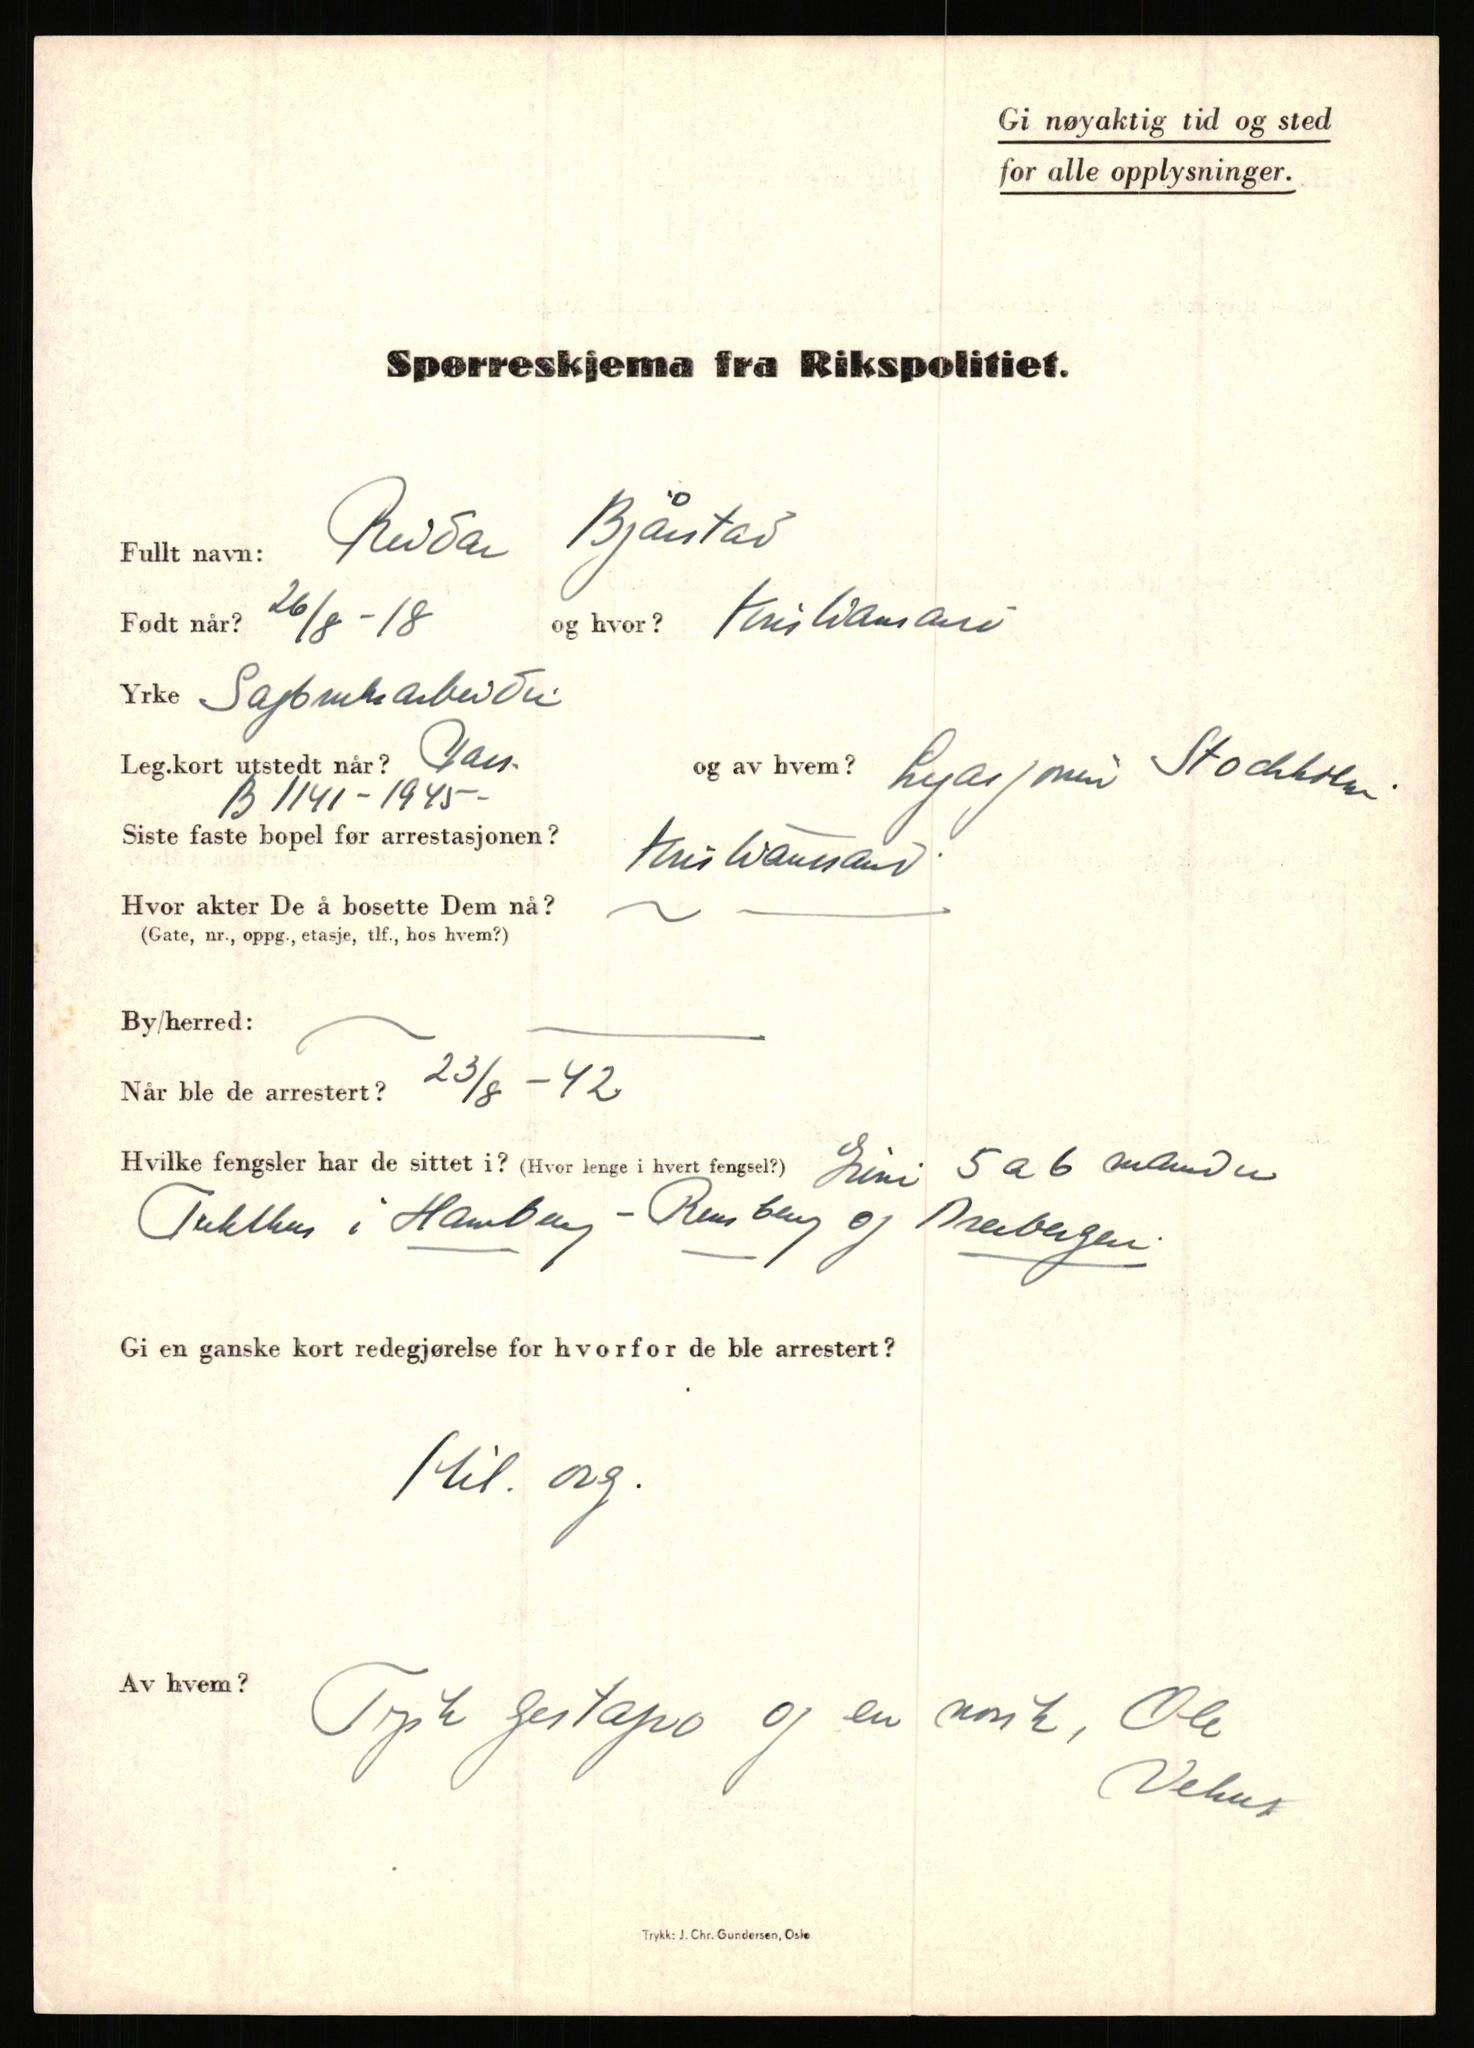 Gi nøyaktig tid og sted
for alle opplysninger.
Spørreskjema fra Rikspolitiet.
Fullt navn: Reidar Bjårstad
Født når? 26/8 - 18 og hvor? Kristiansand
Yrke Sagbruksarbeider
Leg.kort utstedt når? og av hvem? Legasjonen Stockholm.
B 1141 - 1945 -
Siste faste bopel før arrestasjonen? Kristiansand.
Hvor akter De å bosette Dem nå? ~ —
(Gate, nr., oppg., etasje, tlf., hos hvem?)
By/herred: ~ —
Når ble de arrestert? 23/8 - 42
Hvilke fengsler har de sittet i? (Hvor lenge i hvert fengsel?) Grini 5 a 6 måneder
Tukthus i Hamburg - Rensburg og
Gi en ganske kort redegjørelse for hvorfor de ble arrestert?
Mil. org.
Av hvem? Tysk gestapo og en norsk, Ole
Vehus
Trykk: J. Chr. Gundersen, Oslo